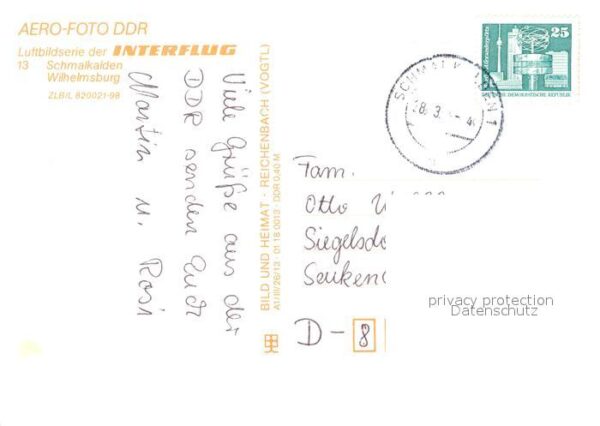 AERO-FOTO DDR
Luftbildserie der INTERFLUG
13 Schmalkalden
Wilhelmsburg
ZLB/L 820021-98
Viele Grüße aus der
DDR senden Euch
Martin u. Rosi
BILD UND HEIMAT · REICHENBACH (VOGTL)
A1/III/26/13 01 18 0013 · DDR 0,40 M
25
Fam.
Otto
Siegelsdo
D-8
privacy protection
Datenschutz